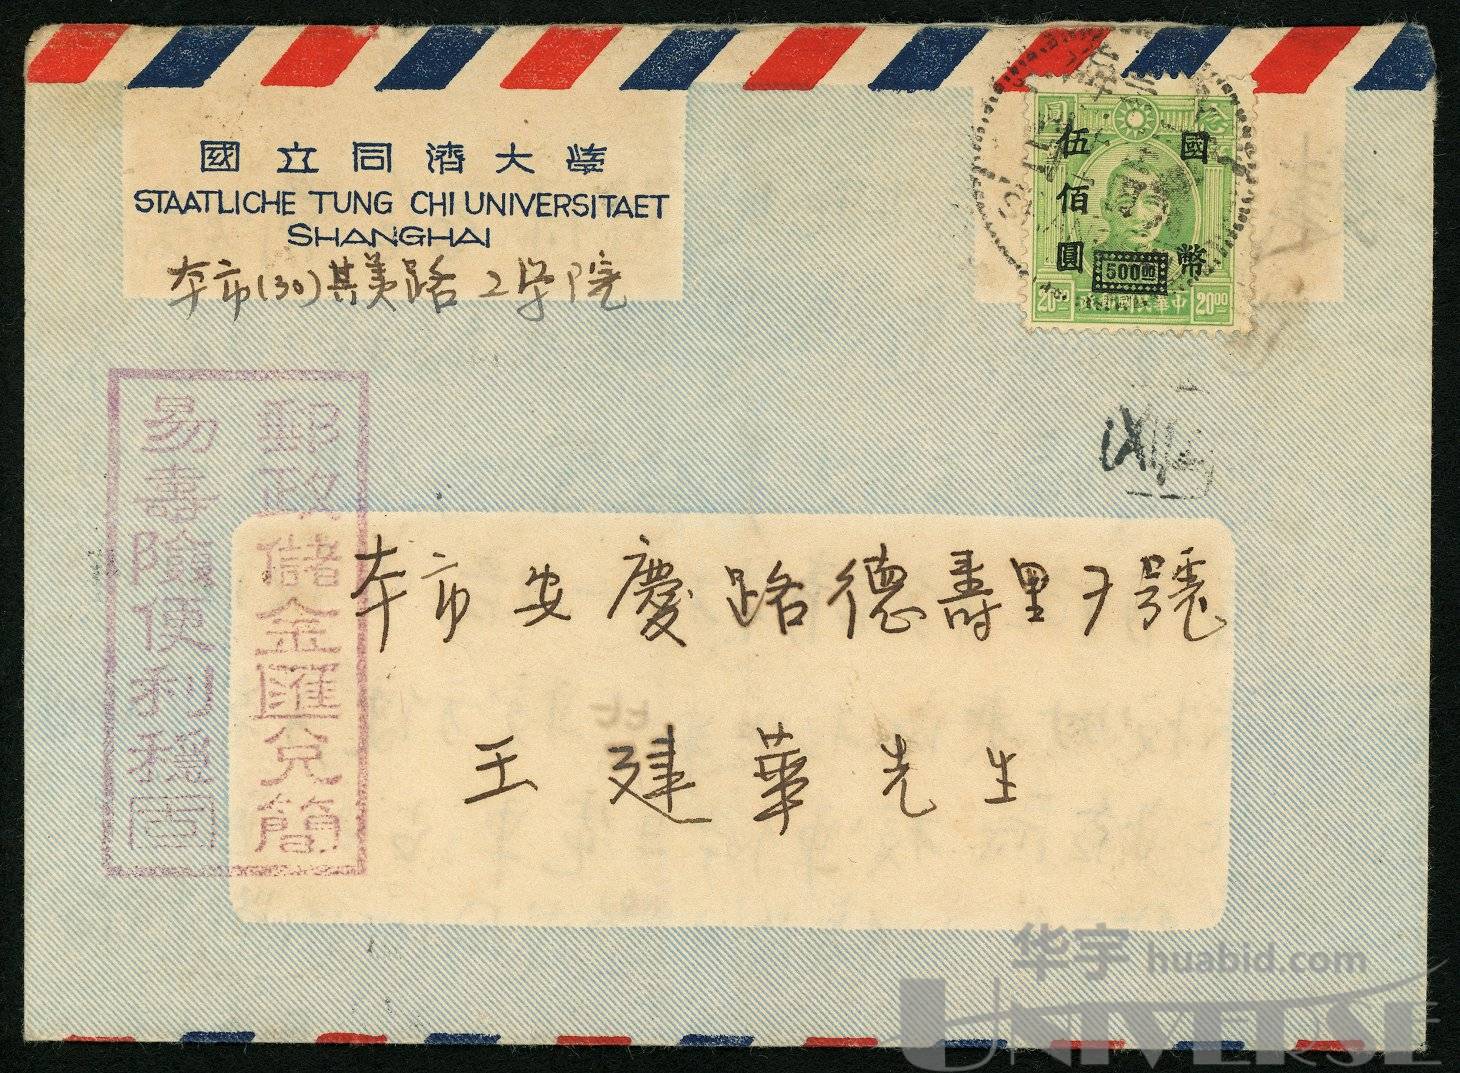 國立同濟大學
STAATLICHE TUNG CHI UNIVERSITAET
SHANGHAI
本市(30)其美路工学院
國幣
伍佰圓
500.00
20.00
中華民國郵政
20.00
郵政儲金匯兌簡
易壽險便利穩固
本市安慶路德壽里7號
王建華先生
华宇 huabid.com
UNIVERSE